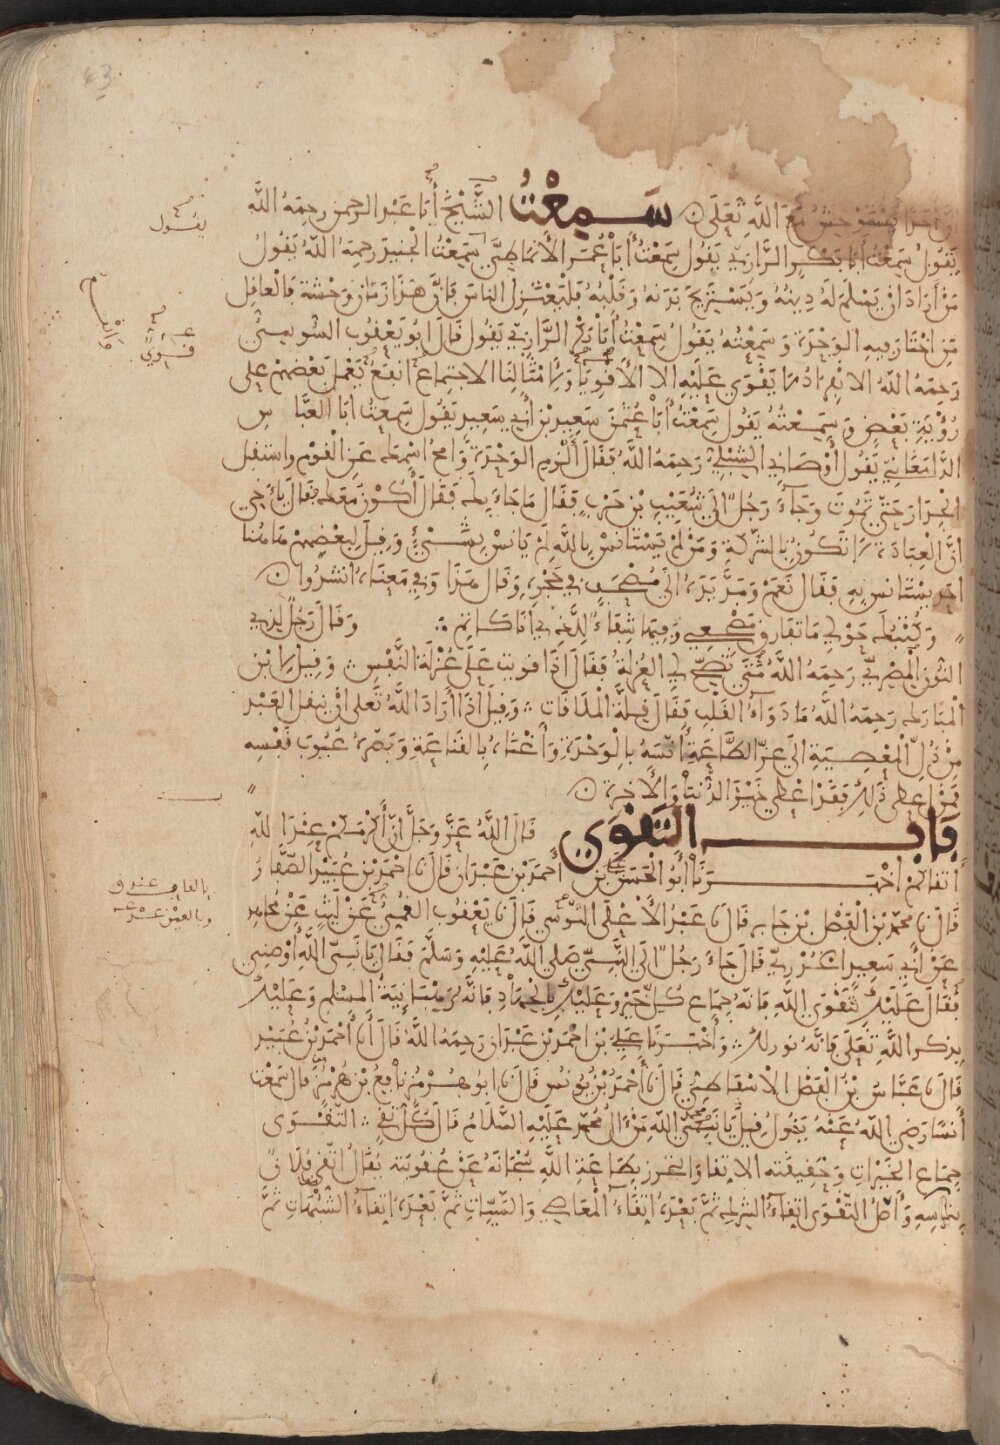 43
ان احدا يستوحش مع الله تعلى سَمِعْتُ الشيخ أبا عبد الرحمن رحمه الله
يقول سمعت أبا بكر الرازي يقول سمعت أبا عمر الأنماطي سمعت الجنيد رحمه الله يقول
من أراد ان يسلم له دينه ويستريح بدنه وقلبه فليعتزل الناس فان هذا زمان وحشة فالعاقل
من اختار فيه الوحدة وسمعته يقول سمعت أبا بكر الرازي يقول قال ابو يعقوب السوسي
رحمه الله الانفراد ما يقوى عليه الا الأقوياء ولأمثالنا الاجتماع انفع يعمل بعضهم على
رؤية بعض وسمعته يقول سمعت أبا عثمن سعيد بن أبي سعيد يقول سمعت ابا العباس
الدامغاني يقول أوصاني الشبلي رحمه الله فقال ألزم الوحدة وامح اسمك عن القوم واستقبل
الجدار حتى تموت وجاء رجل الى شعيب بن حرب فقال ما جاء بك فقال أكون معك قال يأخي
ان العبادة ما تكون بالشركة ومن لم يستانس بالله لم يانس بشيء وقيل لبعضهم ما هنا
احد يستانس به فقال نعم ومد يده الى مصحف في حجره وقال هذا وفي معناه انشدوا
وكتبك حولي ما تفارق مضجعي وفيها شفاء للذي أنا كاتم وقال رجل لذي
النون المصري رحمه الله متى تصح لي العزلة فقال اذا قويت على عزلة النفس وقيل لابن
المبارك رحمه الله ما دواء القلب فقال قلة الملاقات وقيل اذا أراد الله تعلى ان ينقل العبد
من ذل المعصية الى عز الطاعة أنسه بالوحدة وأغناه بالقناعة وبصره عيوب نفسه
فمن اعطي ذلك فقد اعطي خير الدنيا والاخرة
باب التقوى قال الله عز وجل ان أكرمكم عند الله
أتقاكم أخبرنا أبو الحسن علي بن أحمد بن عبدان قال انا احمد بن عبيد الصفار
قال نا محمد بن الفضل بن جابر قال نا عبد الأعلى النرسي قال نا يعقوب القمي عن ليث عن مجاهد
عن أبي سعيد الخدري قال جاء رجل الى النبي صلى الله عليه وسلم فقال يا نبي الله أوصني
فقال عليك بتقوى الله فانه جماع كل خير وعليك بالجهاد فانه رهبانية المسلم وعليك
بذكر الله تعلى فانه نور لك وأخبرنا علي بن احمد بن عبدان رحمه الله قال أنا أحمد بن عبيد
قال نا عباس بن الفضل الاسفاطي قال نا أحمد بن يونس قال نا ابو هرمز نافع بن هرمز قال سمعت
أنسا رضي الله عنه يقول قيل يا نبي الله من ال محمد عليه السلام قال كل تقي التقوى
جماع الخيرات وحقيقته الاتقاء التحرز بطاعة الله سبحانه عن عقوبته يقال اتقى فلان
بترسه وأصل التقوى اتقاء الشرك ثم بعده اتقاء المعاصي والسيئات ثم بعده اتقاء الشبهات ثم
يقول